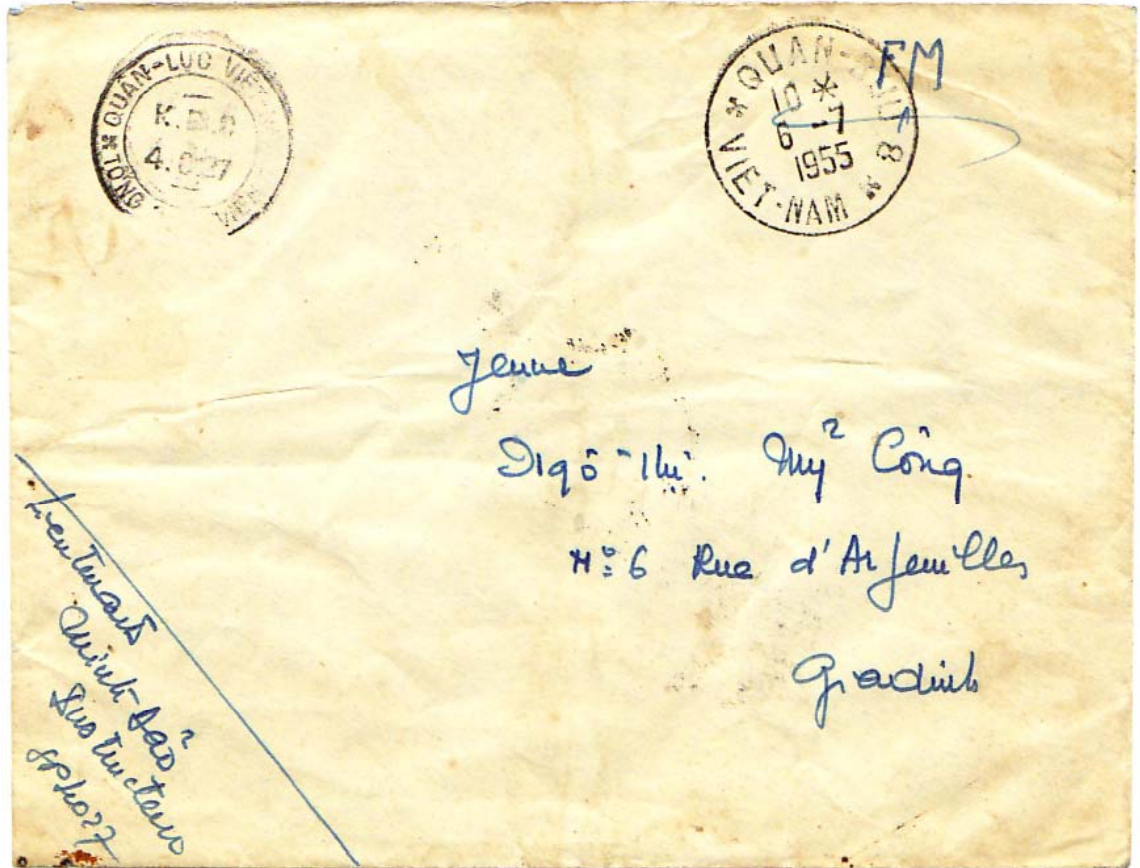 TỔNG * QUÂN-LUC VIET
K.B.C
4.027
QUÂN-BUU * 8 * VIET-NAM *
10 *
6 -7
1955
FM
Jeune
Ngô-thị. Mỹ Công
No: 6 Rue d'Arjeuilles
Giadinh
Lieutenant
Minh Đảo
Instructeur
SP4027